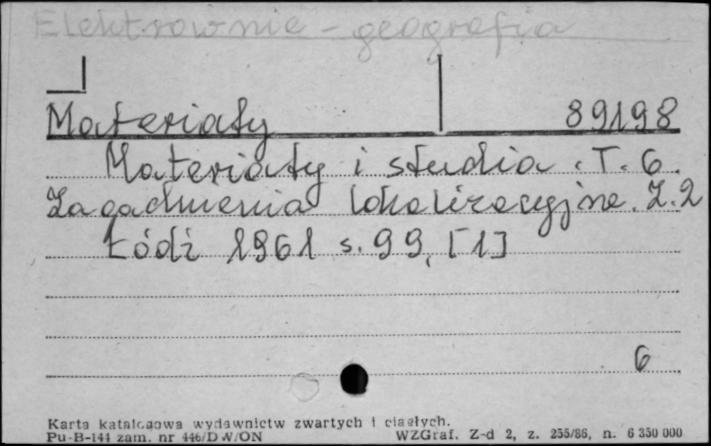 Elektrownie - geografia
Materiały 89198
Materiały i studia. T. 6.
Zagadnienia lokalizacyjne. Z. 2
Łódź 1961 s. 99, [1]
6
Karta katalogowa wydawnictw zwartych i ciągłych.
Pu-B-144 zam. nr 446/DW/ON WZGraf. Z-d 2, z. 255/86, n. 6 350 000